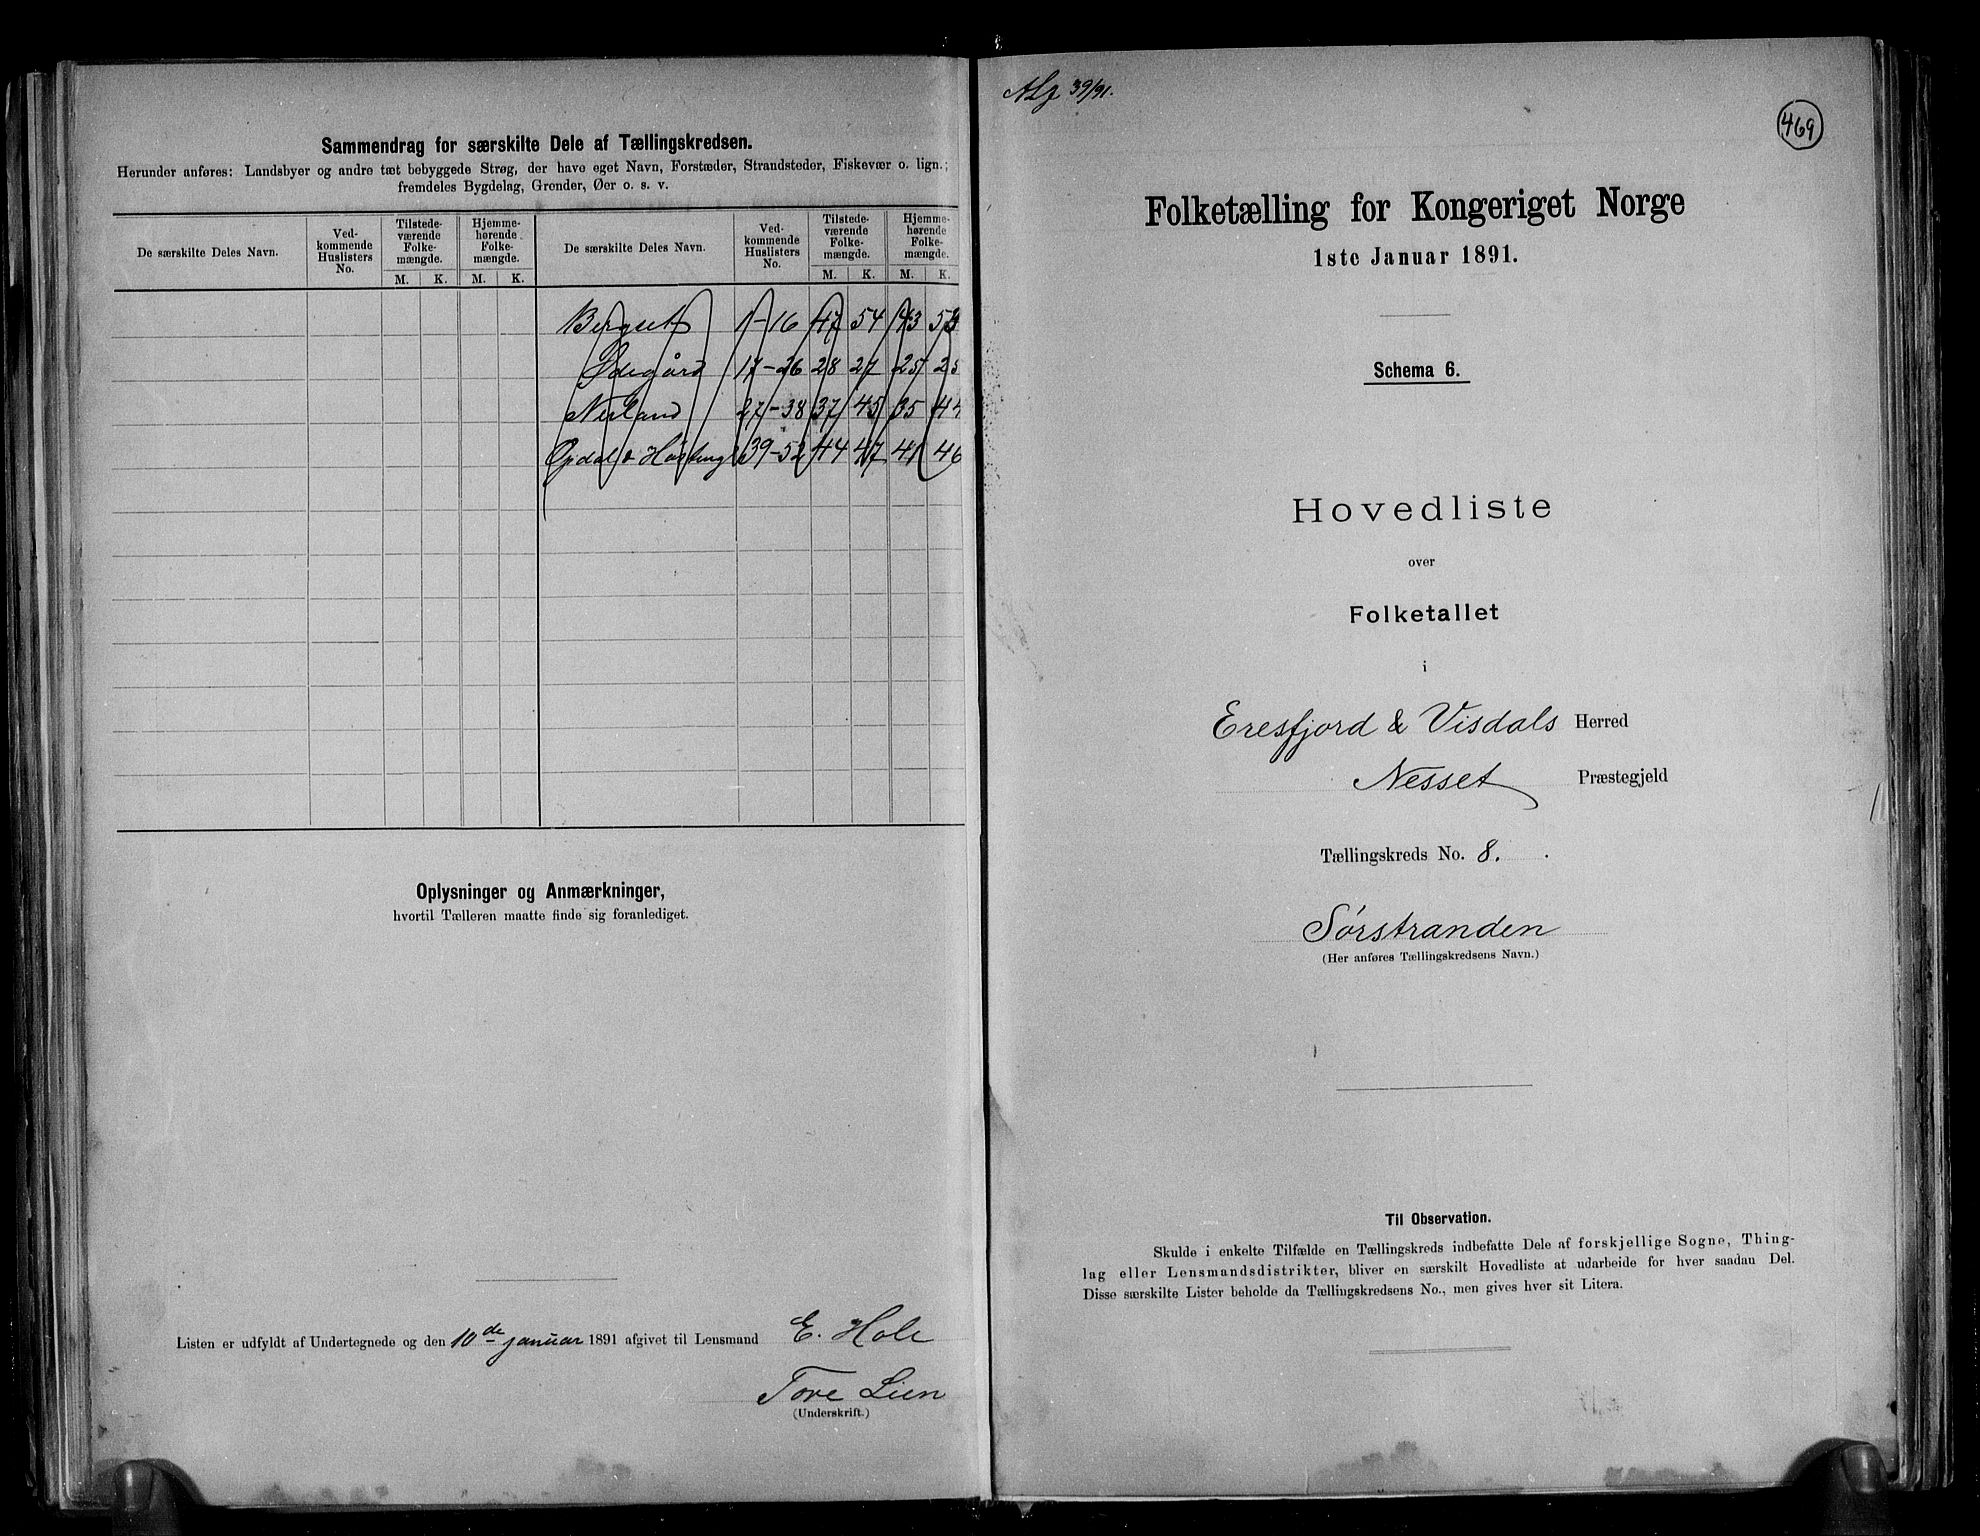 Sammendrag for særskilte Dele af Tællingskredsen.
Herunder anføres: Landsbyer og andre tæt bebyggede Strøg, der have eget Navn, Forstæder, Strandsteder, Fiskevær o. lign.;
fremdeles Bygdelag, Grender, Øer o. s. v.
De særskilte Deles Navn. Ved-kommende Huslisters No. Tilstede-værende Folke-mængde. Hjemme-hørende Folke-mængde. De særskilte Deles Navn. Ved-kommende Huslisters No. Tilstede-værende Folke-mængde. Hjemme-hørende Folke-mængde.
M. K. M. K. M. K. M. K.
Bergset 1-16 47 54 43
Ødegård 17-26 28 27 25 25
Neiland 27-38 37 45 35 44
Opdal & 39-52 44 47 41 46
Oplysninger og Anmærkninger,
hvortil Tælleren maatte finde sig foranlediget.
Listen er udfyldt af Undertegnede og den 10de januar 1891 afgivet til Lensmand E. Hole
Tore Lien
(Underskrift.)
39/91.
469
Folketælling for Kongeriget Norge
1ste Januar 1891.
Schema 6.
Hovedliste
over
Folketallet
i
Eresfjord & Visdals Herred
Nesset Præstegjeld
Tællingskreds No. 8.
Sørstranden
(Her anføres Tællingskredsens Navn.)
Til Observation.
Skulde i enkelte Tilfælde en Tællingskreds indbefatte Dele af forskjellige Sogne, Thing-
lag eller Lensmandsdistrikter, bliver en særskilt Hovedliste at udarbeide for hver saadan Del.
Disse særskilte Lister beholde da Tællingskredsens No., men gives hver sit Litera.